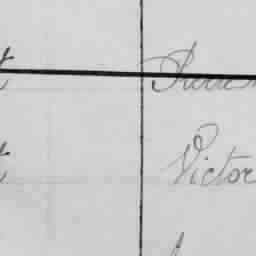 Pierre
Victor